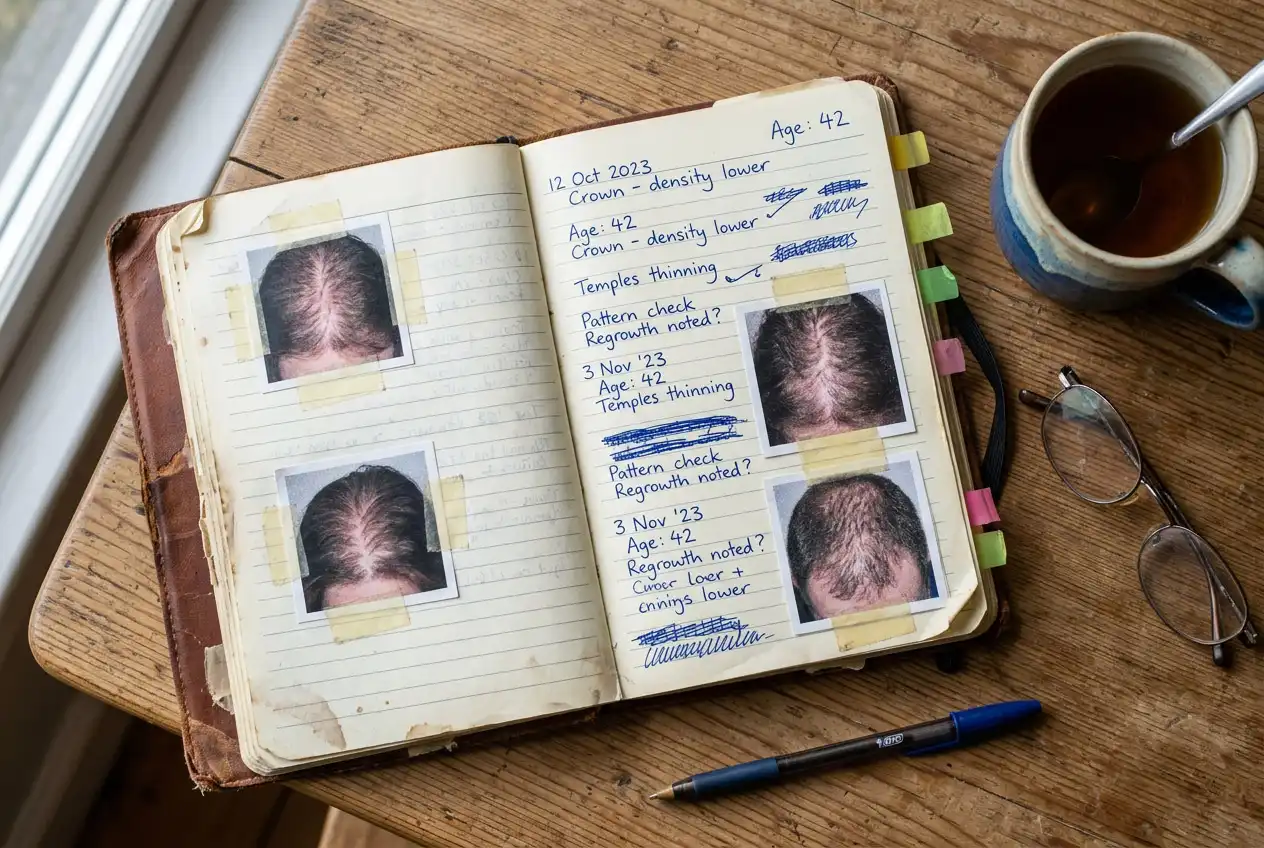 Age: 42
12 Oct 2023
Crown - density lower
Age: 42
Crown - density lower
Temples thinning
Pattern check
Regrowth noted?
3 Nov '23
Age: 42
Temples thinning
Pattern check
Regrowth noted?
3 Nov '23
Age: 42
Regrowth noted?
lower